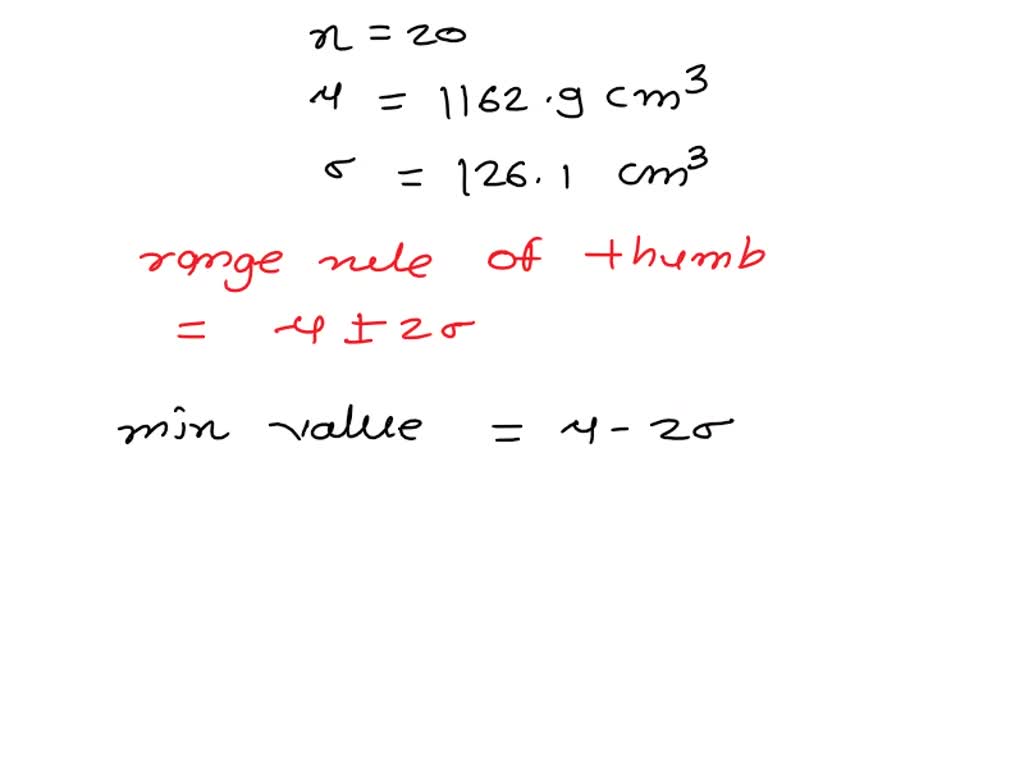 n = 20
μ = 1162.9 cm³
σ = 126.1 cm³
range rule of thumb
= μ ± 2σ
min value = μ - 2σ